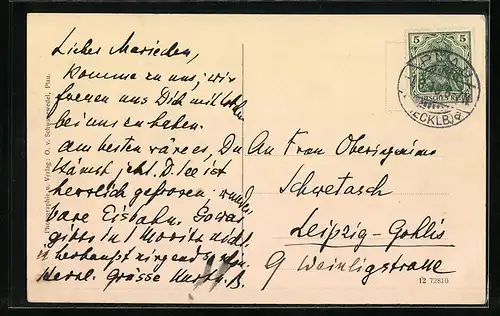 Liebes Mariechen,
komme zu uns, wir
freuen uns Dich mal
bei uns zu haben.
Am besten wäre es, Du
kämst jetzt. D. See ist
herrlich gefroren, wunder-
bare Eisbahn. So was
gitts in St Moritz nicht
überhaupt nirgends
Herzl. Grüsse
Photographie u. Verlag: O. v. Schwartowedel, Plau.
5 5
PLAU
(MECKLB)
An Frau Oberingenieur
Schwetasch
Leipzig-Gohlis
9 Weinligstrasse
12 72810